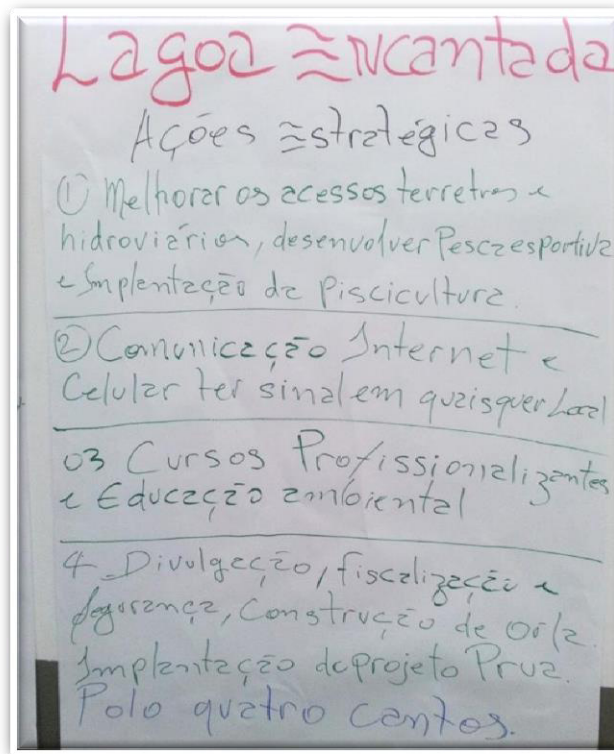 Lagoa Encantada
Ações Estratégicas
① Melhorar os acessos terretres e
hidroviários, desenvolver Pesca esportiva
e Implantação da Piscicultura.
② Comunicação Internet e
Celular ter sinal em quaisquer Local
03 Cursos Profissionalizantes
e Educação ambiental
4 Divulgação, fiscalização e
segurança, Construção de orla.
Implantação do projeto Prua.
Polo quatro cantos.